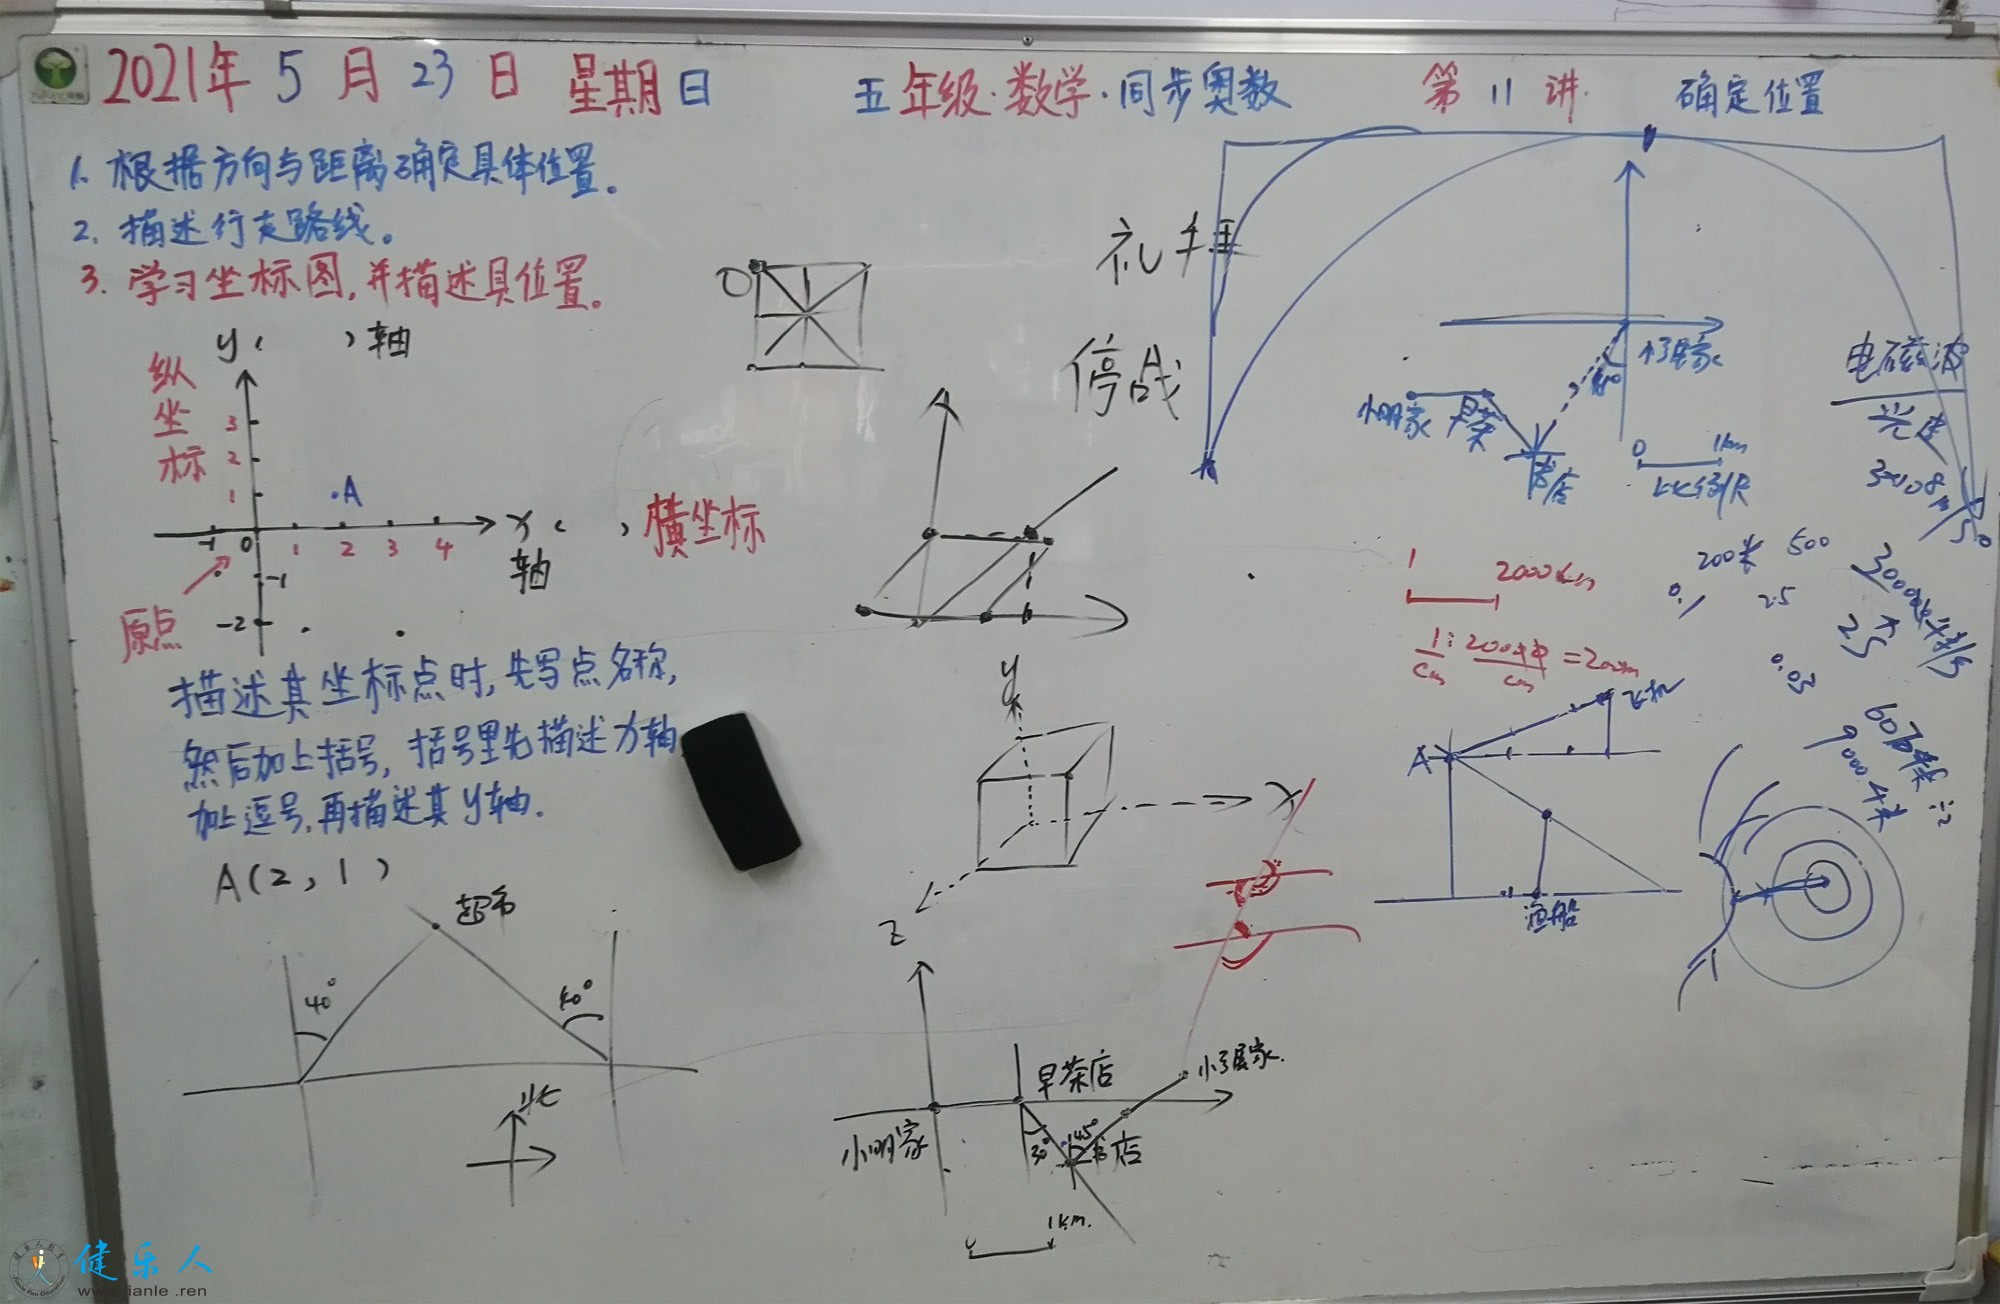 2021年 5 月 23 日 星期日 五年级·数学·同步奥数 第 11 讲 确定位置
1. 根据方向与距离确定具体位置。
2. 描述行走路线。
3. 学习坐标图,并描述具位置。
y( )轴
纵坐标
3
2
1
·A
-1 0 1 2 3 4
x( )轴
横坐标
-1
-2
原点
描述其坐标点时,先写点名称,
然后加上括号,括号里先描述x轴
加上逗号,再描述其y轴.
A(2,1)
超市
40°
北
O
停战
y
x
z
早茶店
小明家
30°
45°
书店
1km.
小明家
早茶
书店
0 1km
比例尺
电磁波
光速
1
2000cm
200米 500
0.1
2.5
25
0.03
A
飞机
渔船
健乐人
www.jianle.ren